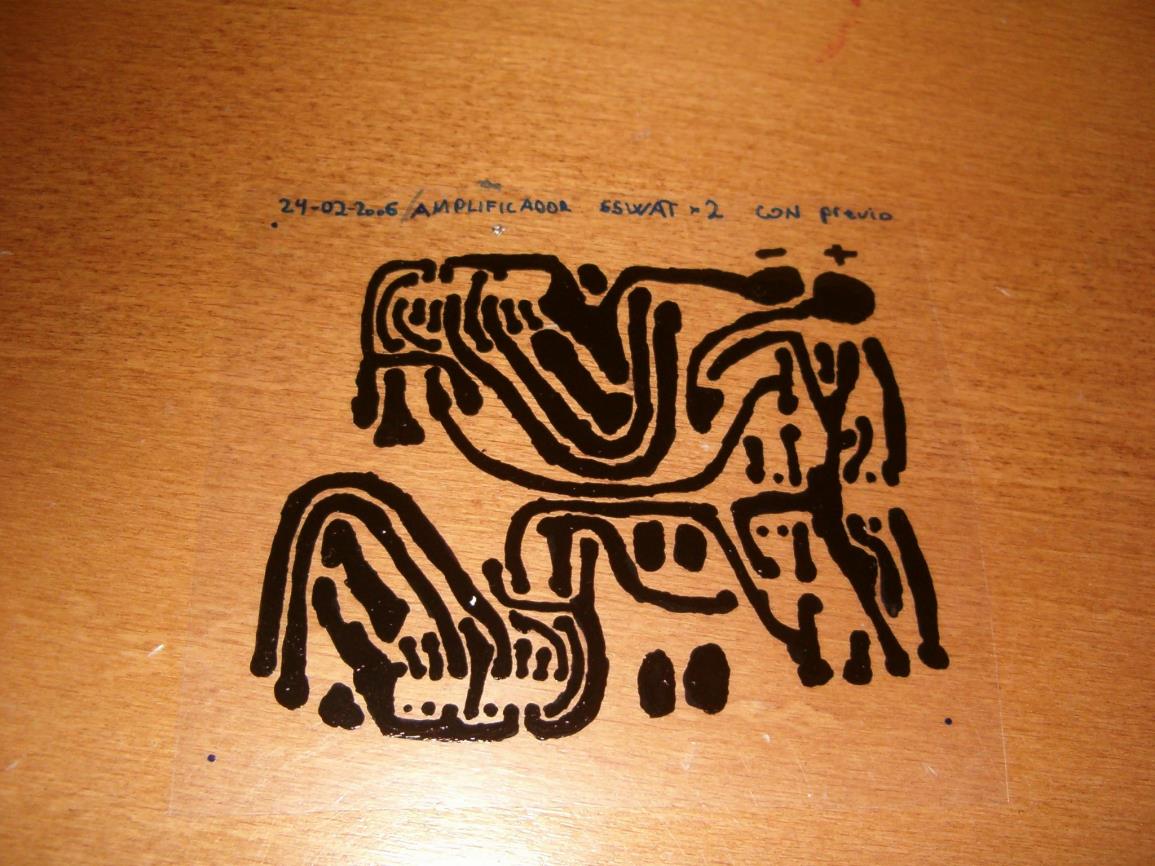 24-02-2006/AMPLIFICADOR 55WAT x2 CON previo
- +